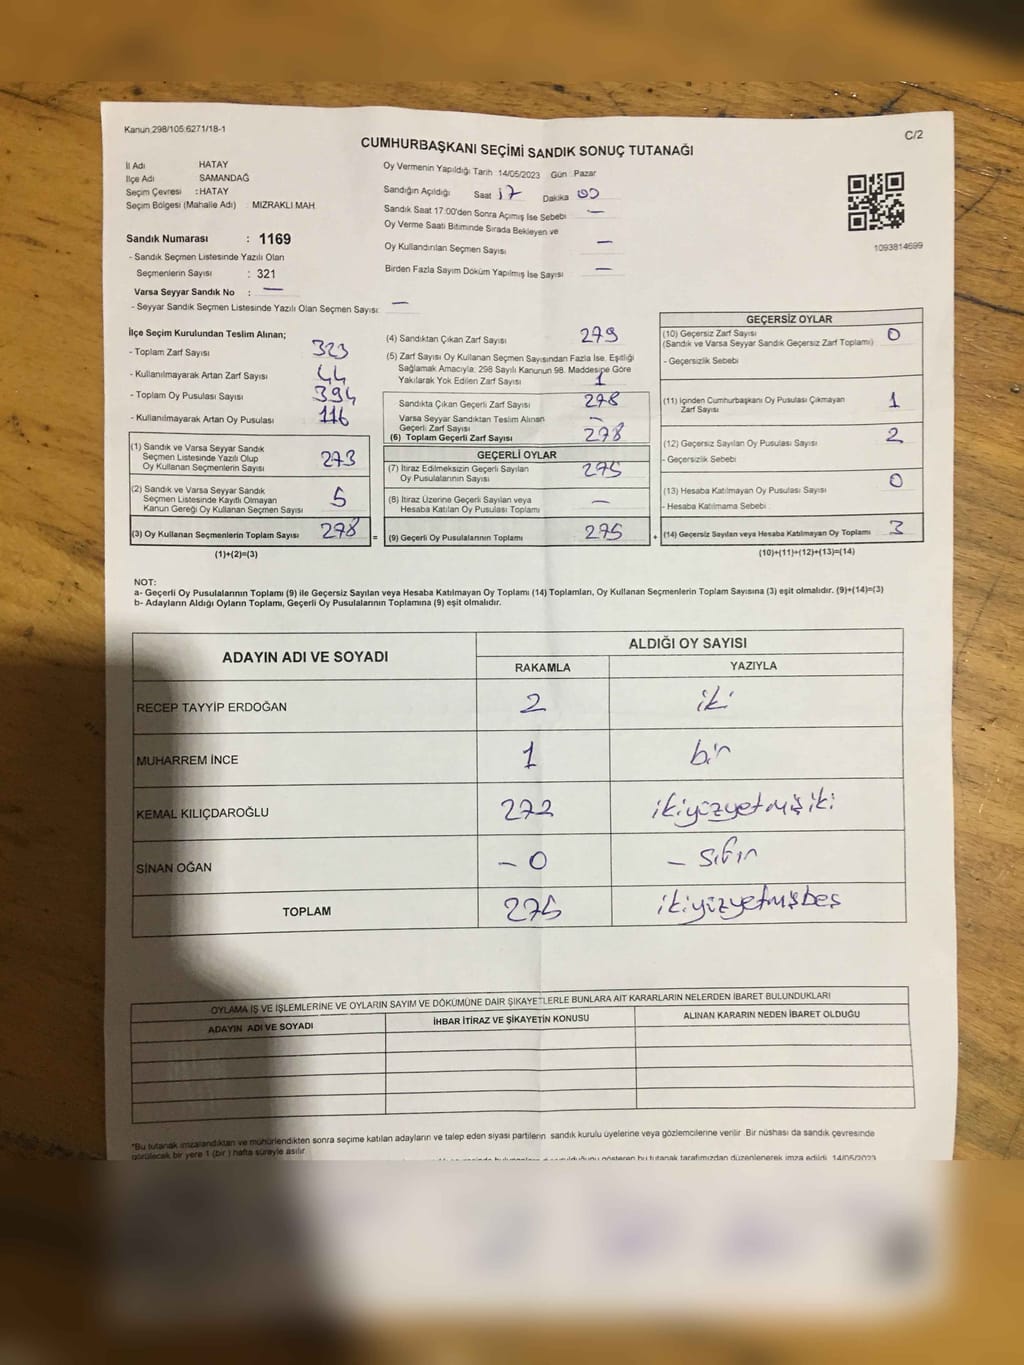 Kanun 298/105 6271/18-1
C/2
CUMHURBAŞKANI SEÇİMİ SANDIK SONUÇ TUTANAĞI
İl Adı HATAY
İlçe Adı SAMANDAĞ
Seçim Çevresi : HATAY
Seçim Bölgesi (Mahalle Adı) MIZRAKLI MAH.
Sandık Numarası : 1169
- Sandık Seçmen Listesinde Yazılı Olan
Seçmenlerin Sayısı : 321
Varsa Seyyar Sandık No : —
- Seyyar Sandık Seçmen Listesinde Yazılı Olan Seçmen Sayısı: —
Oy Vermenin Yapıldığı Tarih 14/05/2023 Gün : Pazar
Sandığın Açıldığı Saat 17 Dakika 00
Sandık Saat 17:00'den Sonra Açımış İse Sebebi —
Oy Verme Saati Bitiminde Sırada Bekleyen ve
Oy Kullandırılan Seçmen Sayısı —
Birden Fazla Sayım Döküm Yapılmış İse Sayısı —
1093814699
İlçe Seçim Kurulundan Teslim Alınan;
- Toplam Zarf Sayısı 323
- Kullanılmayarak Artan Zarf Sayısı 44
- Toplam Oy Pusulası Sayısı 394
- Kullanılmayarak Artan Oy Pusulası 116
(1) Sandık ve Varsa Seyyar Sandık
Seçmen Listesinde Yazılı Olup
Oy Kullanan Seçmenlerin Sayısı 273
(2) Sandık ve Varsa Seyyar Sandık
Seçmen Listesinde Kayıtlı Olmayan
Kanun Gereği Oy Kullanan Seçmen Sayısı 5
(3) Oy Kullanan Seçmenlerin Toplam Sayısı 278 =
(1)+(2)=(3)
(4) Sandıktan Çıkan Zarf Sayısı 279
(5) Zarf Sayısı Oy Kullanan Seçmen Sayısından Fazla İse, Eşitliği
Sağlamak Amacıyla; 298 Sayılı Kanunun 98. Maddesine Göre
Yakılarak Yok Edilen Zarf Sayısı 1
Sandıkta Çıkan Geçerli Zarf Sayısı 278
Varsa Seyyar Sandıktan Teslim Alınan
Geçerli Zarf Sayısı —
(6) Toplam Geçerli Zarf Sayısı 278
GEÇERLİ OYLAR
(7) İtiraz Edilmeksizin Geçerli Sayılan
Oy Pusulalarının Sayısı 275
(8) İtiraz Üzerine Geçerli Sayılan veya
Hesaba Katılan Oy Pusulası Toplamı —
(9) Geçerli Oy Pusulalarının Toplamı 275 +
GEÇERSİZ OYLAR
(10) Geçersiz Zarf Sayısı 0
(Sandık ve Varsa Seyyar Sandık Geçersiz Zarf Toplamı)
- Geçersizlik Sebebi
(11) İçinden Cumhurbaşkanı Oy Pusulası Çıkmayan
Zarf Sayısı 1
(12) Geçersiz Sayılan Oy Pusulası Sayısı 2
- Geçersizlik Sebebi
(13) Hesaba Katılmayan Oy Pusulası Sayısı 0
- Hesaba Katılmama Sebebi
(14) Geçersiz Sayılan veya Hesaba Katılmayan Oy Toplamı 3
(10)+(11)+(12)+(13)=(14)
NOT:
a- Geçerli Oy Pusulalarının Toplamı (9) ile Geçersiz Sayılan veya Hesaba Katılmayan Oy Toplamı (14) Toplamları, Oy Kullanan Seçmenlerin Toplam Sayısına (3) eşit olmalıdır. (9)+(14)=(3)
b- Adayların Aldığı Oyların Toplamı, Geçerli Oy Pusulalarının Toplamına (9) eşit olmalıdır.
ADAYIN ADI VE SOYADI ALDIĞI OY SAYISI
RAKAMLA YAZIYLA
RECEP TAYYİP ERDOĞAN 2 iki
MUHARREM İNCE 1 bir
KEMAL KILIÇDAROĞLU 272 ikiyüzyetmişiki
SİNAN OĞAN – 0 – sıfır
TOPLAM 275 ikiyüzyetmişbeş
OYLAMA İŞ VE İŞLEMLERİNE VE OYLARIN SAYIM VE DÖKÜMÜNE DAİR ŞİKAYETLERLE BUNLARA AİT KARARLARIN NELERDEN İBARET BULUNDUKLARI
ADAYIN ADI VE SOYADI İHBAR İTİRAZ VE ŞİKAYETİN KONUSU ALINAN KARARIN NEDEN İBARET OLDUĞU
*Bu tutanak imzalandıktan ve mühürlendikten sonra seçime katılan adayların ve talep eden siyasi partilerin sandık kurulu üyelerine veya gözlemcilerine verilir. Bir nüshası da sandık çevresinde
görülecek bir yere 1 (bir) hafta süreyle asılır
bu tutanak tarafımızdan düzenlenerek imza edildi. 14/05/2023